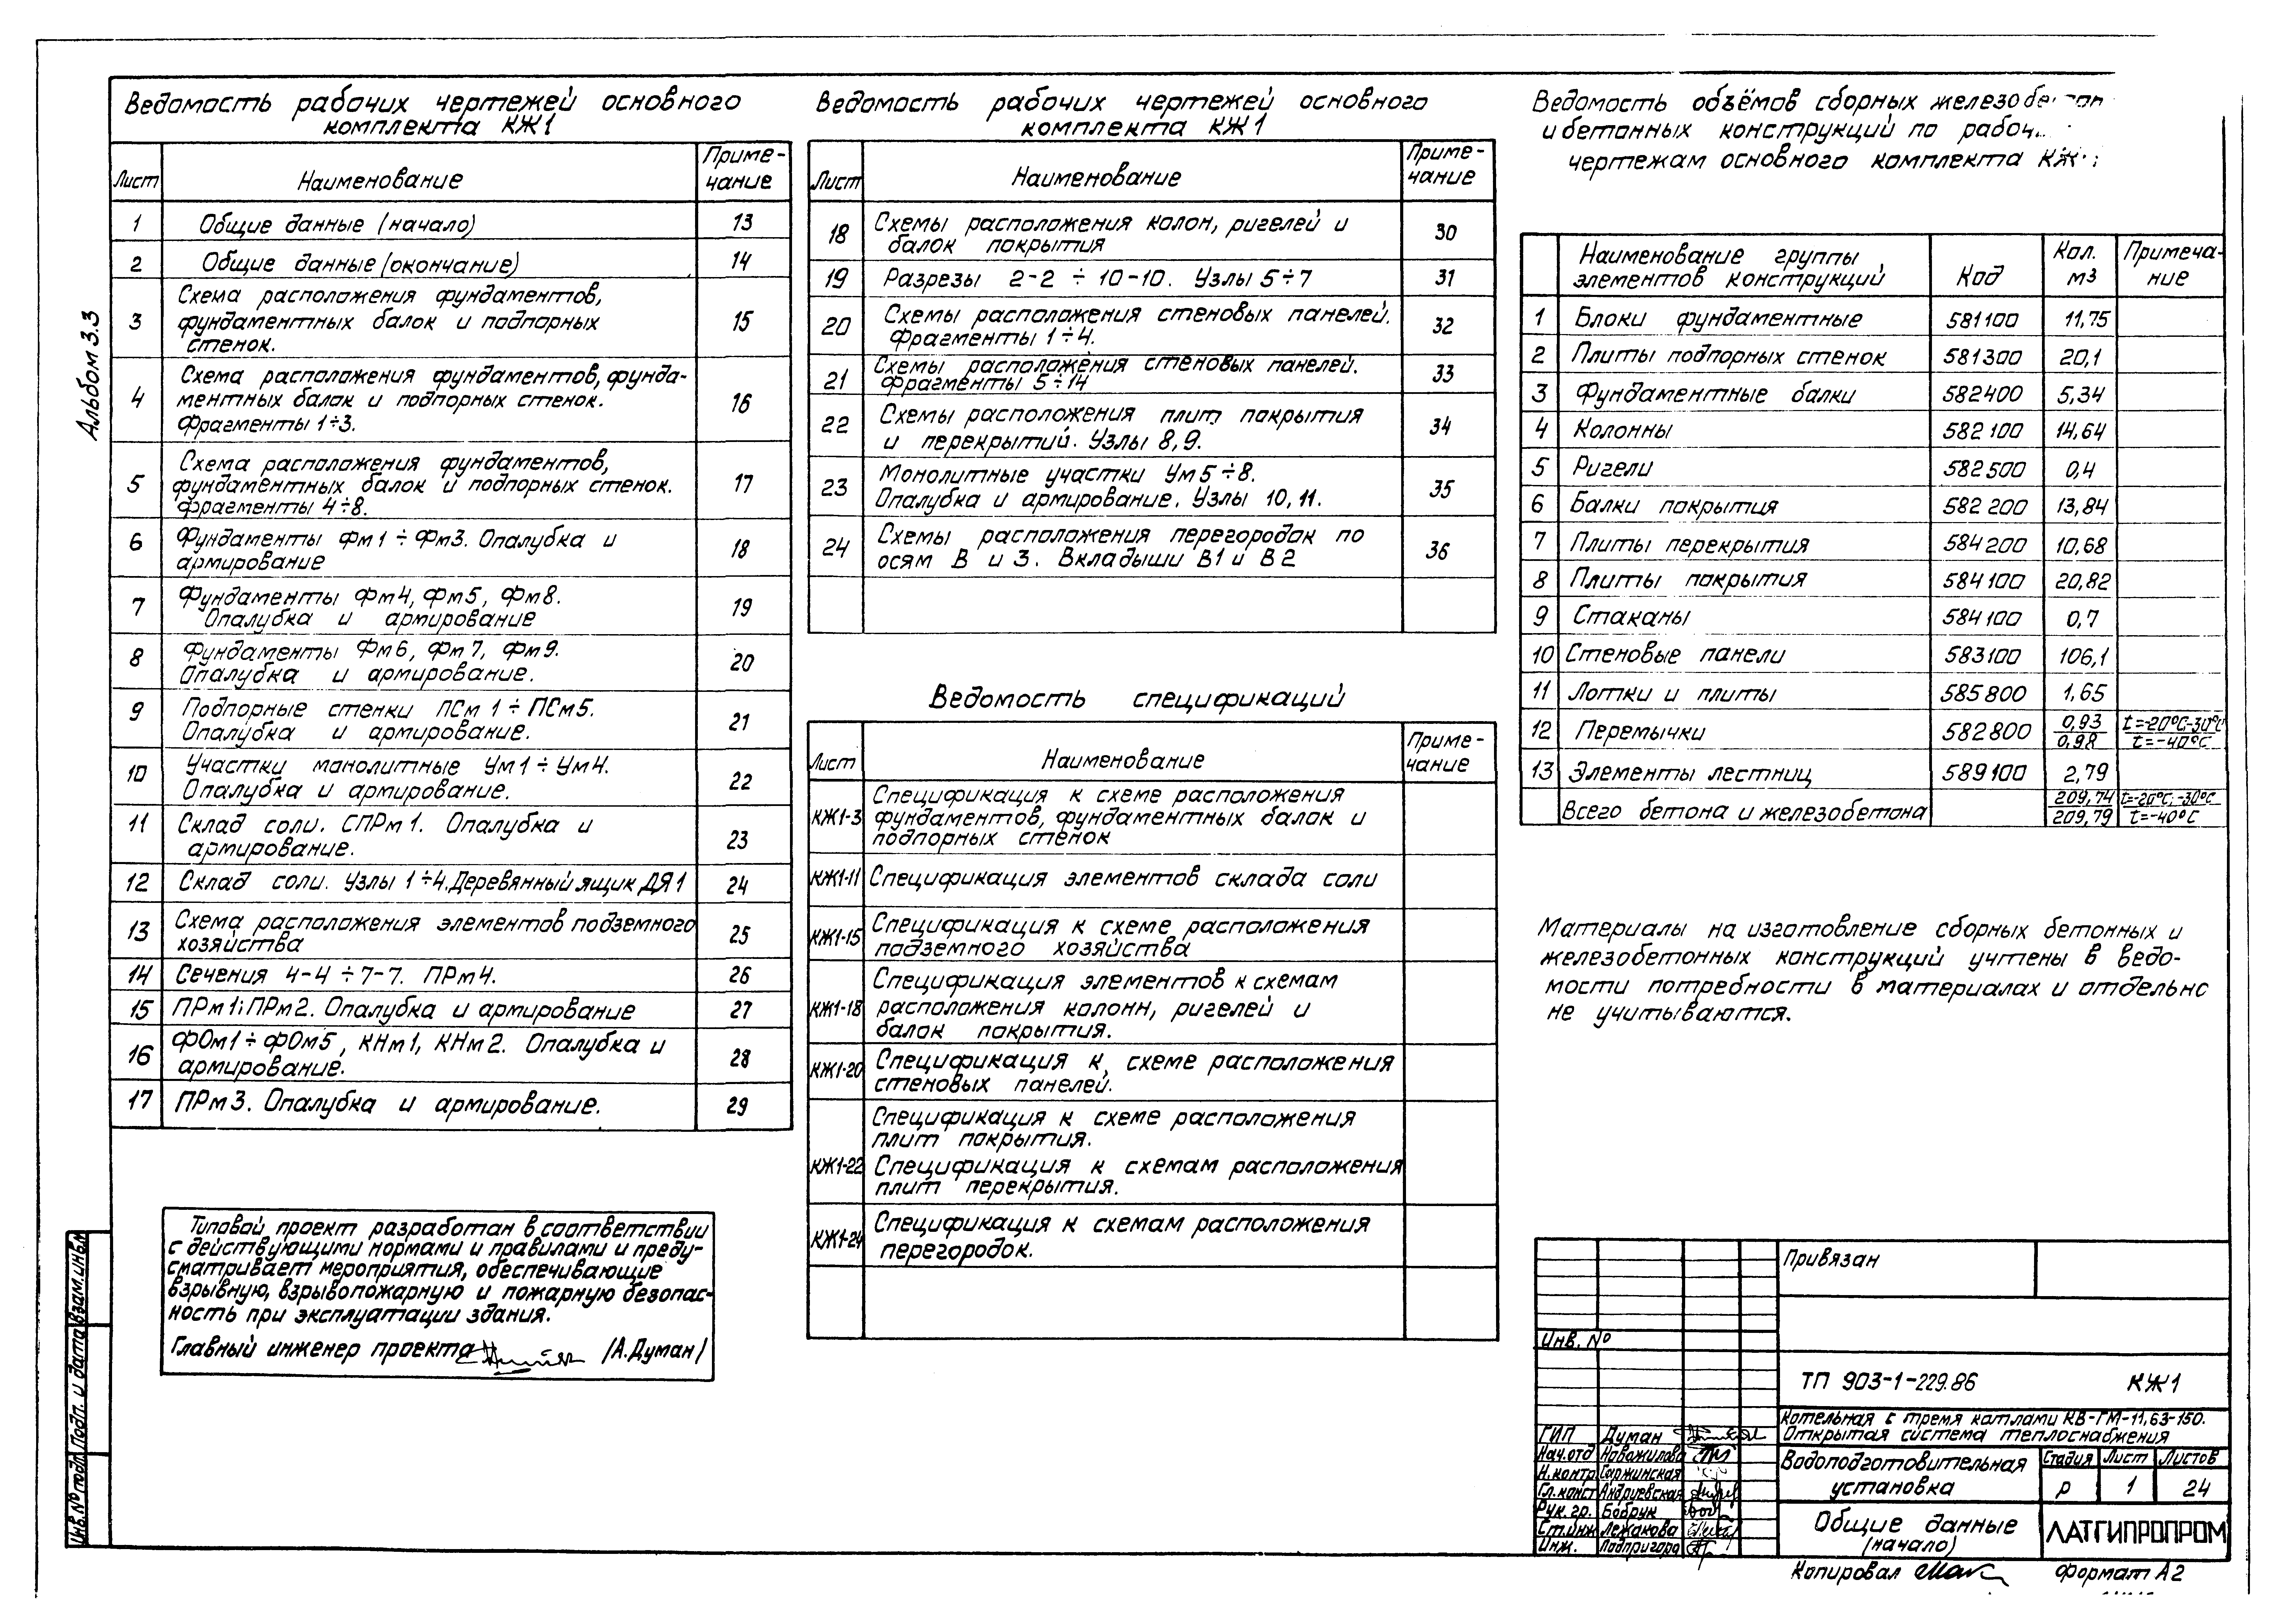 Альбом 3.3
Ведомость рабочих чертежей основного
комплекта КЖ1
Лист Наименование Приме-
чание
1 Общие данные (начало) 13
2 Общие данные (окончание) 14
3 Схема расположения фундаментов,
фундаментных балок и подпорных
стенок. 15
4 Схема расположения фундаментов, фунда-
ментных балок и подпорных стенок.
Фрагменты 1÷3. 16
5 Схема расположения фундаментов,
фундаментных балок и подпорных стенок.
фрагменты 4÷8. 17
6 Фундаменты Фм1 ÷ Фм3. Опалубка и
армирование 18
7 Фундаменты Фм4, Фм5, Фм8.
Опалубка и армирование 19
8 Фундаменты Фм6, Фм7, Фм9.
Опалубка и армирование. 20
9 Подпорные стенки ПСм1 ÷ ПСм5.
Опалубка и армирование. 21
10 Участки монолитные Ум1 ÷ Ум4.
Опалубка и армирование. 22
11 Склад соли. СПРм1. Опалубка и
армирование. 23
12 Склад соли. Узлы 1÷4. Деревянный ящик ДЯ1 24
13 Схема расположения элементов подземного
хозяйства 25
14 Сечения 4-4 ÷ 7-7. ПРм4. 26
15 ПРм1; ПРм2. Опалубка и армирование 27
16 ФОм1 ÷ ФОм5, КНм1, КНм2. Опалубка и
армирование. 28
17 ПРм3. Опалубка и армирование. 29
Типовой проект разработан в соответствии
с действующими нормами и правилами и преду-
сматривает мероприятия, обеспечивающие
взрывную, взрывопожарную и пожарную безопас-
ность при эксплуатации здания.
Главный инженер проекта /А.Думан/
Ведомость рабочих чертежей основного
комплекта КЖ1
Лист Наименование Приме-
чание
18 Схемы расположения колон, ригелей и
балок покрытия 30
19 Разрезы 2-2 ÷ 10-10. Узлы 5÷7 31
20 Схемы расположения стеновых панелей.
Фрагменты 1÷4. 32
21 Схемы расположения стеновых панелей.
фрагменты 5÷14 33
22 Схемы расположения плит покрытия
и перекрытий. Узлы 8,9. 34
23 Монолитные участки Ум5÷8.
Опалубка и армирование. Узлы 10,11. 35
24 Схемы расположения перегородок по
осям В и 3. Вкладыши В1 и В2 36
Ведомость спецификаций
Лист Наименование Приме-
чание
КЖ1-3 Спецификация к схеме расположения
фундаментов, фундаментных балок и
подпорных стенок
КЖ1-11 Спецификация элементов склада соли
КЖ1-15 Спецификация к схеме расположения
подземного хозяйства
КЖ1-18 Спецификация элементов к схемам
расположения колонн, ригелей и
балок покрытия.
КЖ1-20 Спецификация к схеме расположения
стеновых панелей.
КЖ1-22 Спецификация к схеме расположения
плит покрытия.
Спецификация к схемам расположения
плит перекрытия.
КЖ1-24 Спецификация к схемам расположения
перегородок.
Ведомость объёмов сборных
и бетонных конструкций по
чертежам основного комплекта
Наименование группы
элементов конструкций Код Кол.
м3 Примеча-
ние
1 Блоки фундаментные 581100 11,75
2 Плиты подпорных стенок 581300 20,1
3 Фундаментные балки 582400 5,34
4 Колонны 582100 14,64
5 Ригели 582500 0,4
6 Балки покрытия 582200 13,84
7 Плиты перекрытия 584200 10,68
8 Плиты покрытия 584100 20,82
9 Стаканы 584100 0,7
10 Стеновые панели 583100 106,1
11 Лотки и плиты 585800 1,65
12 Перемычки 582800 0,93 t=-20°C-30°C
0,98 t=-40°C
13 Элементы лестниц 589100 2,79
Всего бетона и железобетона 209,74 t=-20°C,-30°C
209,79 t=-40°C
Материалы на изготовление сборных бетонных и
железобетонных конструкций учтены в ведо-
мости потребности в материалах и отдельно
не учитываются.
Привязан
Инв. №
ТП 903-1-229.86 КЖ1
Котельная с тремя котлами КВ-ГМ-11,63-150.
Открытая система теплоснабжения
Водоподготовительная
установка
Стадия Лист Листов
Р 1 24
Общие данные
(начало)
ЛАТГИПРОПРОМ
ГИП Думан
Нач.отд Новожилова
Н.контр Саржинская
Гл.конст Андриевская
Рук.гр. Бобрук
Ст.инж Лежакова
Инж. Подпригора
Копировал Формат А2
Инв.№ подл. Подп. и дата Взам.инв.№